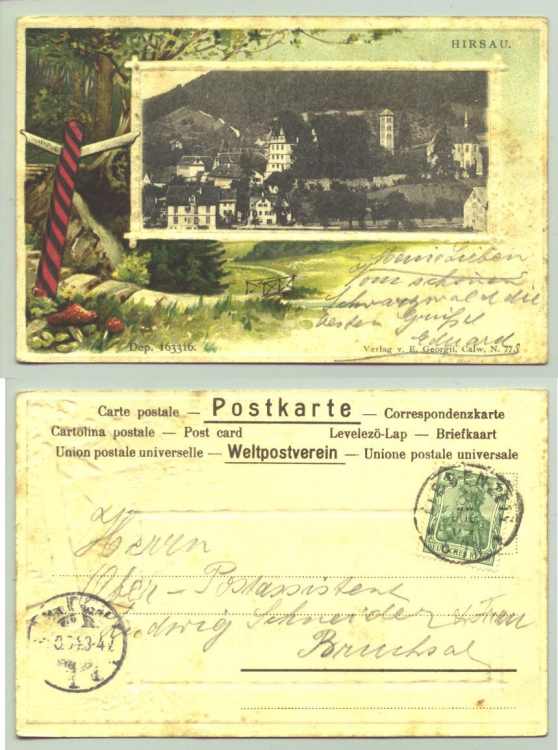 HIRSAU.
Meine Lieben
vom schönen
Schwarzwald die
besten Grüße
Eduard
Dep. 163316.
Verlag v. E. Georgii, Calw, N. 773
Carte postale — Postkarte — Correspondenzkarte
Cartolina postale — Post card Levelezö-Lap — Briefkaart
Union postale universelle — Weltpostverein — Unione postale universale
Herrn
Ober-Postassistent
Ludwig Schneider & Frau
Bruchsal